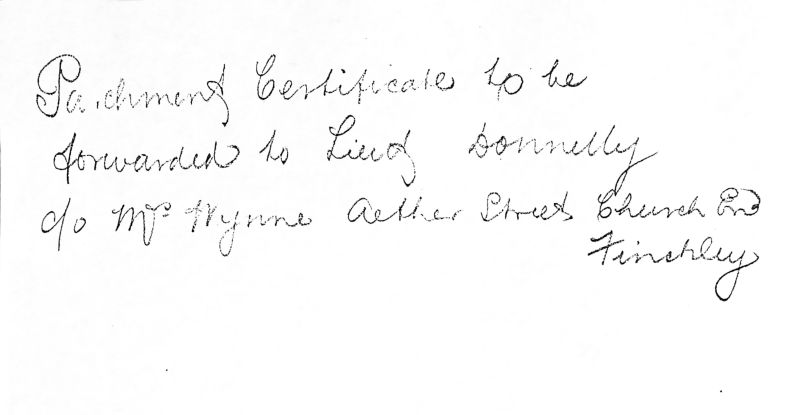 Parchment Certificate to be
forwarded to Lieut Donnelly
c/o Mrs Wynne Aether Street Church End
Finchley